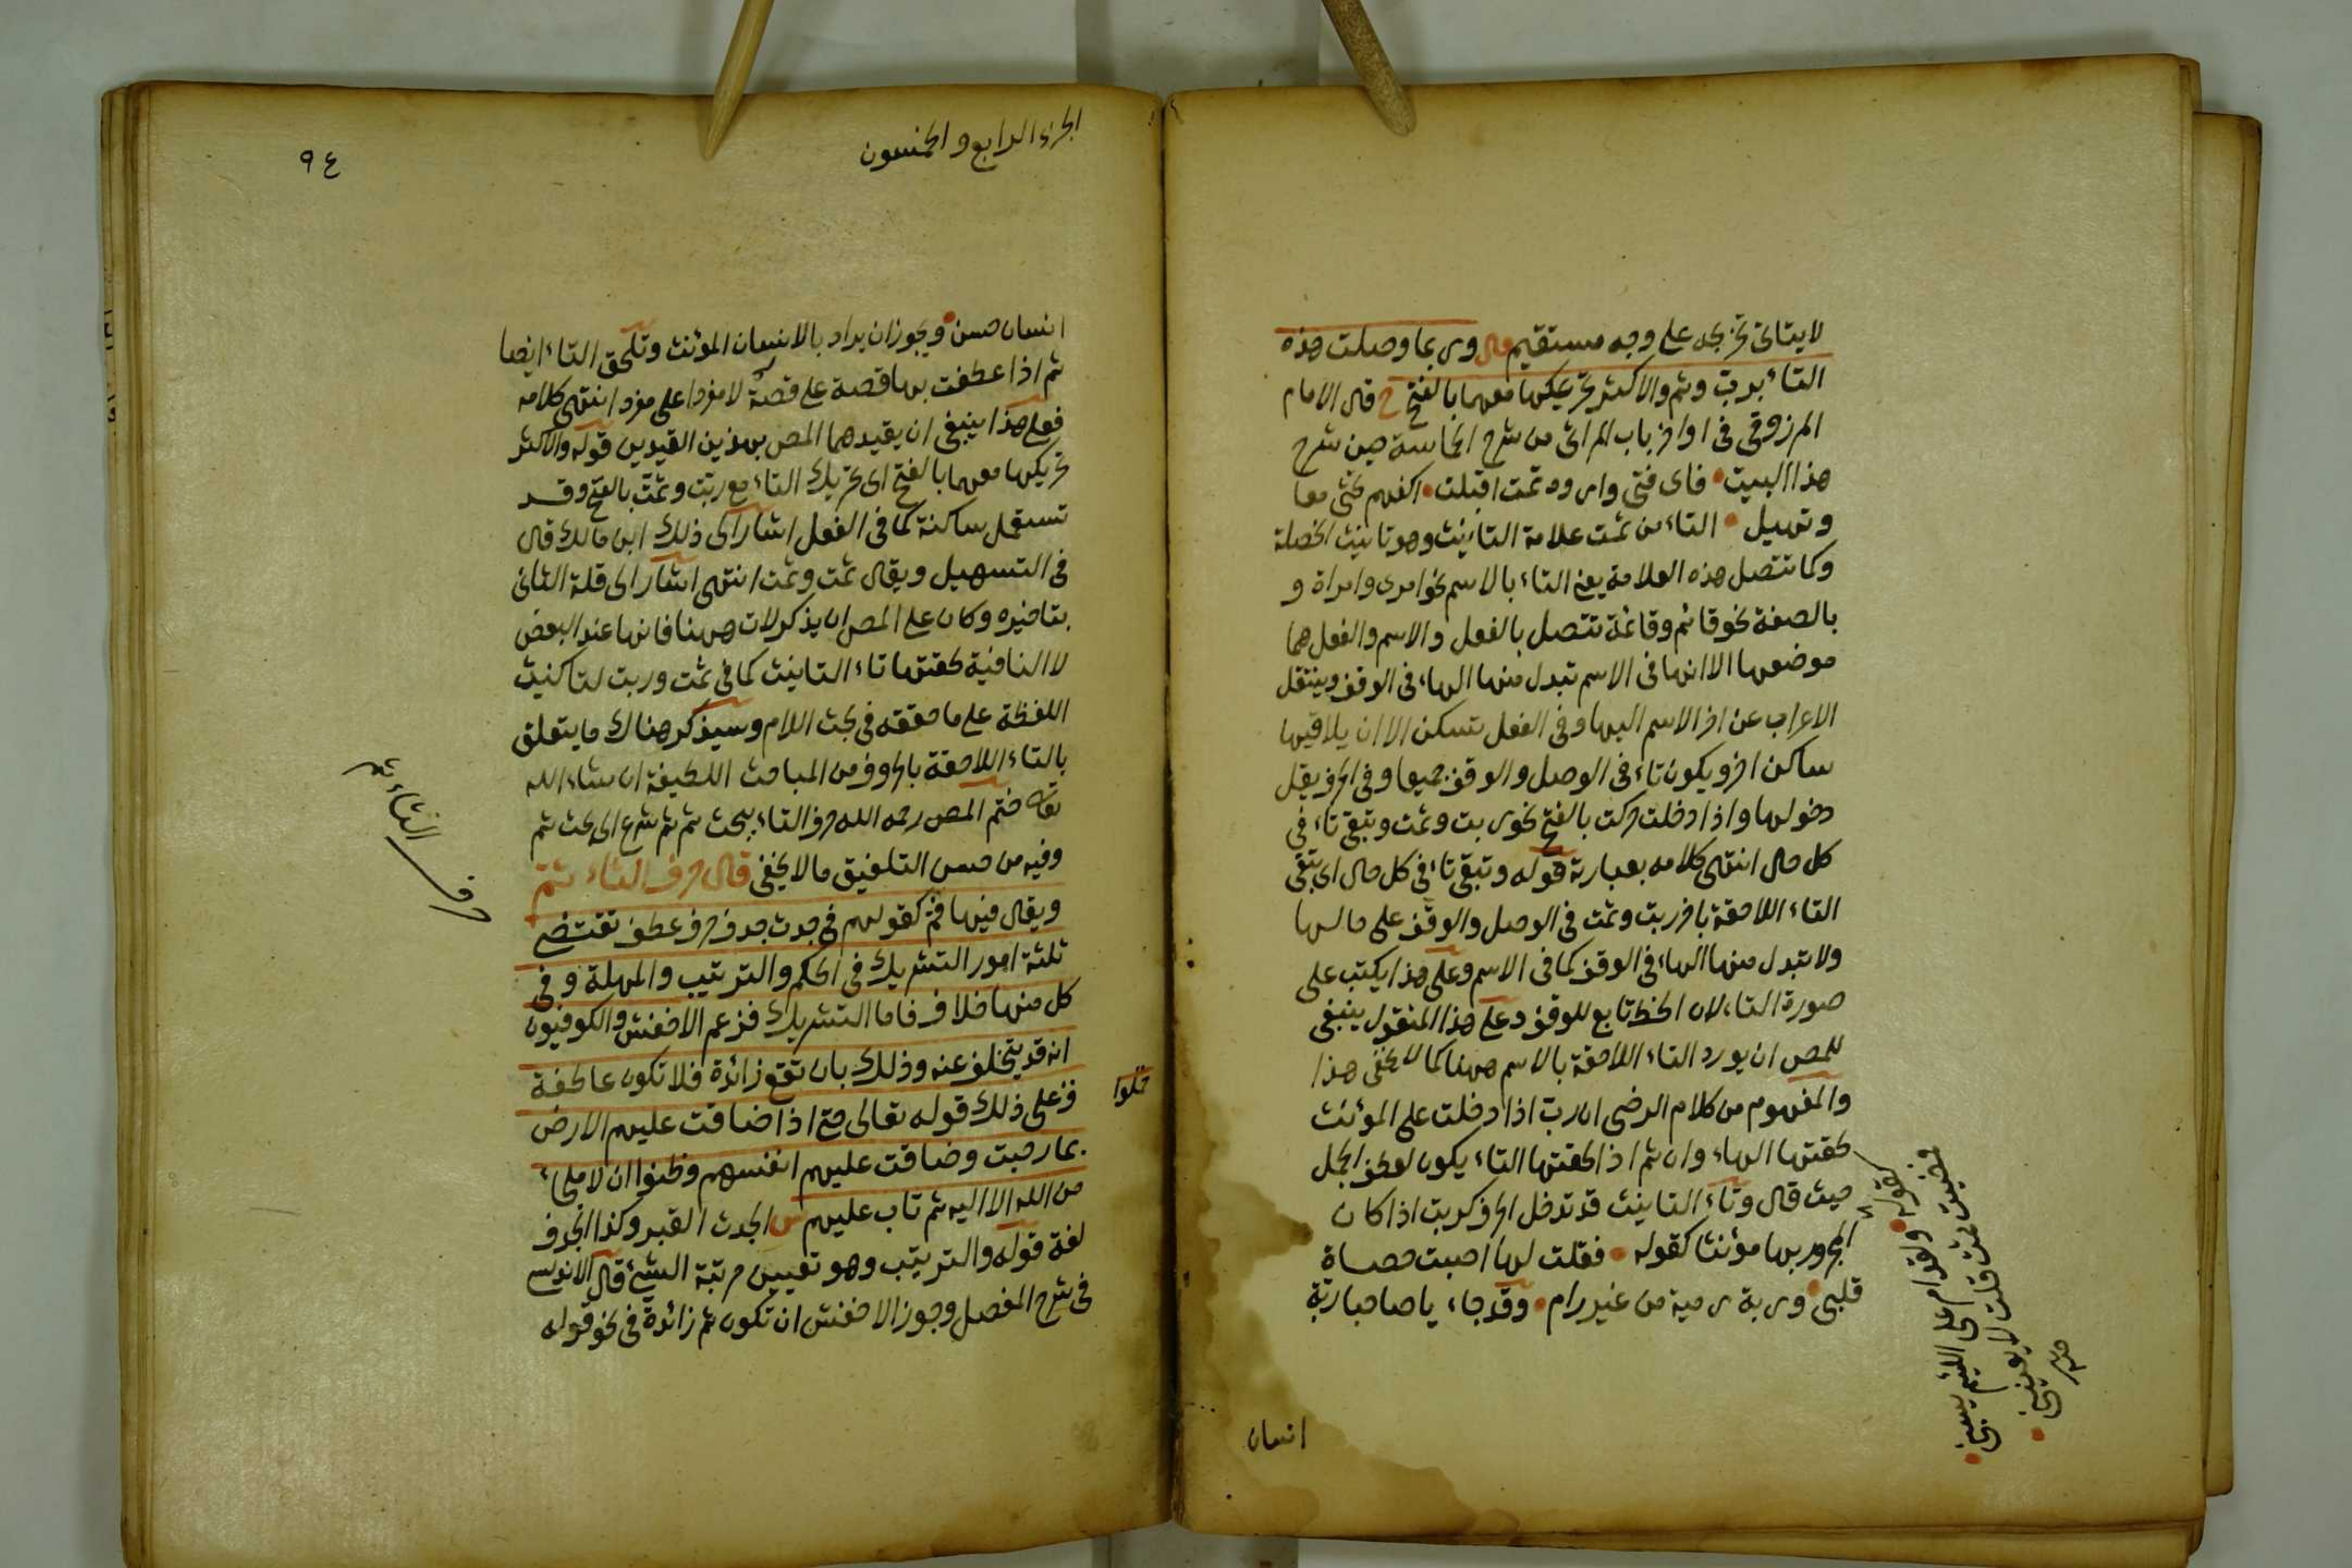 لا يتاتى تخريجه على وجه مستقيم قال وربما وصلت هذه
التاء بربت وثم والاكثر تحريكها معهما بالفتح ح قال الامام
المرزوقي في اواخر باب المراثي من شرح الحماسة حين شرح
هذا البيت فاى فتى واروه ثمت اقبلت اكفهم تحثى معا
وتهيل التاء من ثمت علامة التانيث وهو تانيث الخصلة
وكما تتصل هذه العلامة يعنى التاء بالاسم نحو امرى وامراة و
بالصفة نحو قائم وقائمة تتصل بالفعل والاسم والفعل هما
موضعها الا انها في الاسم تبدل منها الهاء في الوقف وينتقل
الاعراب عن اخر الاسم اليها وفى الفعل تسكن الا ان يلاقيها
ساكن اخر ويكون تاء فى الوصل والوقف جميعا وفى الحرف يقل
دخولها واذا دخلت حركت بالفتح نحو ربت وثمت وتبقى تاء فى
كل حال انتهى كلامه بعبارته قوله وتبقى تاء فى كل حال اى تبقى
التاء اللاحقة باخر ربت وثمت فى الوصل والوقف على حالها
ولا تبدل منها الهاء فى الوقف كما فى الاسم وعلى هذا يكتب على
صورة التاء لان الخط تابع للوقف وعلى هذا المنقول ينبغى
للمص ان يورد التاء اللاحقة بالاسم ههنا كما لا يخفى هذا
والمفهوم من كلام الرضى ان رب اذا دخلت على المؤنث
لحقتها الهاء وان ثم اذا لحقتها التاء يكون لعطف الجمل
حيث قال وتاء التانيث قد تدخل الحرف كربت اذا كان
المجرور بها مؤنثا كقوله فقلت لها اصبت حصاة
قلبى وربة رمية من غير رام وقد جاء يا صاحبا ربة
كقوله ولقد امر على اللئيم يسبنى
فمضيت ثمت قلت لا يعنينى
انسان
الجزء الرابع والخمسون
٩٤
انسان حسن ويجوز ان يراد بالانسان المؤنث وتلحق التاء ايضا
ثم اذا عطفت بها قصة على قصة لا مفردا على مفرد انتهى كلامه
فعلى هذا ينبغى ان يقيدهما المص بهذين القيدين قوله والاكثر
تحريكها معهما بالفتح اى تحريك التاء مع ربت وثمت بالفتح وقد
تستعمل ساكنة كما فى الفعل اشار الى ذلك ابن مالك قال
فى التسهيل ويقال ثمت وثمت انتهى اشار الى قلة الثانى
بتاخيره وكان على المص ان يذكر لات ههنا فانها عند البعض
لا النافية لحقتها تاء التانيث كما فى ثمت وربت لتاكنيث
اللفظة على ما حققه فى بحث اللام وسيذكر هناك ما يتعلق
بالتاء اللاحقة بالحروف من المباحث اللطيفة ان شاء الله
تعالى ختم المص رحمه الله حرف التاء ببحث ثم ثم شرع الى بحث ثم
وفيه من حسن التلفيق ما لا يخفى قال حرف الثاء ثم
ويقال فيها فم كقولهم فى جدث جدف حرف عطف تقتضى
ثلثة امور التشريك فى الحكم والترتيب والمهلة وفى
كل منها خلاف فاما التشريك فزعم الاخفش والكوفيون
انه قد يتخلف عنه وذلك بان تقع زائدة فلا تكون عاطفة
فعلى ذلك قوله تعالى حتى اذا ضاقت عليهم الارض
بما رحبت وضاقت عليهم انفسهم وظنوا ان لا ملجاء
من الله الا اليه ثم تاب عليهم ش الجدث القبر وكذا الجدف
لغة قوله والترتيب وهو تعيين مرتبة الشئ قال الاندلسى
فى شرح المفصل وجوز الاخفش ان تكون ثم زائدة فى نحو قوله
حرف الثاء